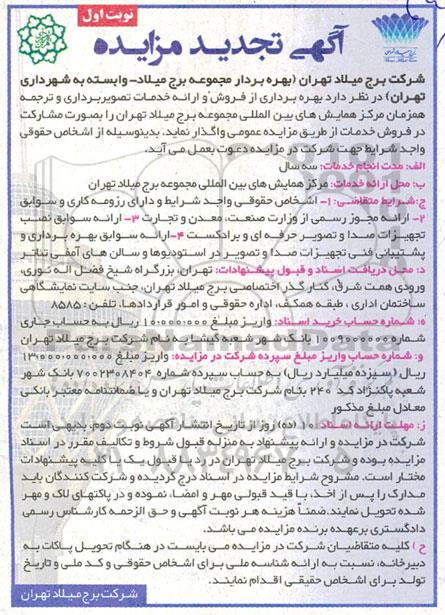 نوبت اول
آگهی تجدید مزایده
شرکت برج میلاد تهران (بهره بردار مجموعه برج میلاد- وابسته به شهرداری
تهران) در نظر دارد بهره برداری از فروش و ارائه خدمات تصویربرداری و ترجمه
همزمان مرکز همایش های بین المللی مجموعه برج میلاد تهران را بصورت مشارکت
در فروش خدمات از طریق مزایده عمومی واگذار نماید. بدینوسیله از اشخاص حقوقی
واجد شرایط جهت شرکت در مزایده دعوت بعمل می آید.
الف: مدت انجام خدمات: سه سال
ب: محل ارائه خدمات: مرکز همایش های بین المللی مجموعه برج میلاد تهران
ج: شرایط متقاضی: ۱- اشخاص حقوقی واجد شرایط و دارای رزومه کاری و سوابق
۲- ارائه مجوز رسمی از وزارت صنعت، معدن و تجارت ۳- ارائه سوابق نصب
تجهیزات صدا و تصویر حرفه ای و برادکست ۴- ارائه سوابق بهره برداری و
پشتیبانی فنی تجهیزات صدا و تصویر در استودیوها و سالن های آمفی تئاتر
د: محل دریافت اسناد و قبول پیشنهادات: تهران، بزرگراه شیخ فضل اله نوری،
ورودی همت شرق، کنار گذر اختصاصی برج میلاد تهران، جنب سایت نمایشگاهی
ساختمان اداری، طبقه همکف، اداره حقوقی و امور قراردادها. تلفن: ۸۵۸۵
ه: شماره حساب خرید اسناد: واریز مبلغ ۱۰۰۰۰۰۰ ریال به حساب جاری
شماره بانک شهر شعبه گیشا به نام شرکت برج میلاد تهران
و: شماره حساب واریز مبلغ سپرده شرکت در مزایده: واریز مبلغ ۱۳۰۰۰۰۰۰۰۰۰
ریال (سیزده میلیارد ریال) به حساب سپرده شماره ۷۰۰۲۳۰۸۴۰۴ بانک شهر
شعبه پاکنژاد کد ۲۴۰ بنام شرکت برج میلاد تهران و یا ضمانتنامه معتبر بانکی
معادل مبلغ مذکور
ز: مهلت ارائه اسناد: ۱۰ (ده) روز از تاریخ انتشار آگهی نوبت دوم. بدیهی است
شرکت در مزایده و ارائه پیشنهاد به منزله قبول شروط و تکالیف مقرر در اسناد
مزایده بوده و شرکت برج میلاد تهران در رد یا قبول یک یا کلیه پیشنهادات
مختار است. مشروح شرایط مزایده در اسناد درج گردیده و شرکت کنندگان باید
مدارک را پس از اخذ، با قید قبولی مهر و امضاء نموده و در پاکتهای لاک و مهر
شده تحویل نمایند. ضمناً هزینه هر نوبت آگهی و حق الزحمه کارشناس رسمی
دادگستری بر عهده برنده مزایده می باشد.
ح) کلیه متقاضیان شرکت در مزایده می بایست در هنگام تحویل پاکات به
دبیرخانه، نسبت به ارائه شناسه ملی برای اشخاص حقوقی و کد ملی و تاریخ
تولد برای اشخاص حقیقی اقدام نمایند.
شرکت برج میلاد تهران